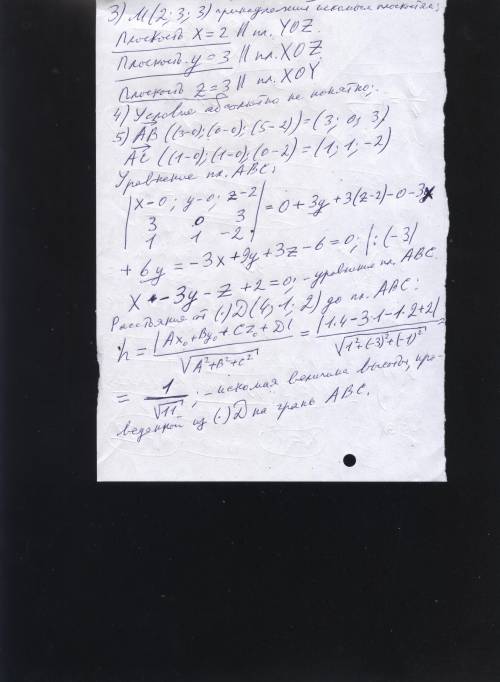 3) М(2; 3; 3) принадлежит искомым плоскостям:
Плоскость x = 2 || пл. YOZ.
Плоскость y = 3 || пл. XOZ;
Плоскость z = 3 || пл. XOY
4) Условие абсолютно не понятно;.
5) AB ((3-0); (0-0); (5-2)) = (3; 0; 3)
AC ((1-0); (1-0); (0-2)) = (1; 1; -2)
Уравнение пл. ABC:
| x-0; y-0; z-2 |
| 3 0 3 | = 0 + 3y + 3(z-2) - 0 - 3x
| 1 1 -2 |
+ 6y = -3x + 9y + 3z - 6 = 0; | : (-3)
x - 3y - z + 2 = 0; - уравнение пл. ABC.
Расстояние от (·) D(4; 1; 2) до пл. ABC:
h = |Ax₀ + By₀ + Cz₀ + D| / √A²+B²+C² = |1·4 - 3·1 - 1·2 + 2| / √1²+(-3)²+(-1)² =
= 1/√11; - искомая величина высоты, про-
веденной из (·) D на грань ABC.